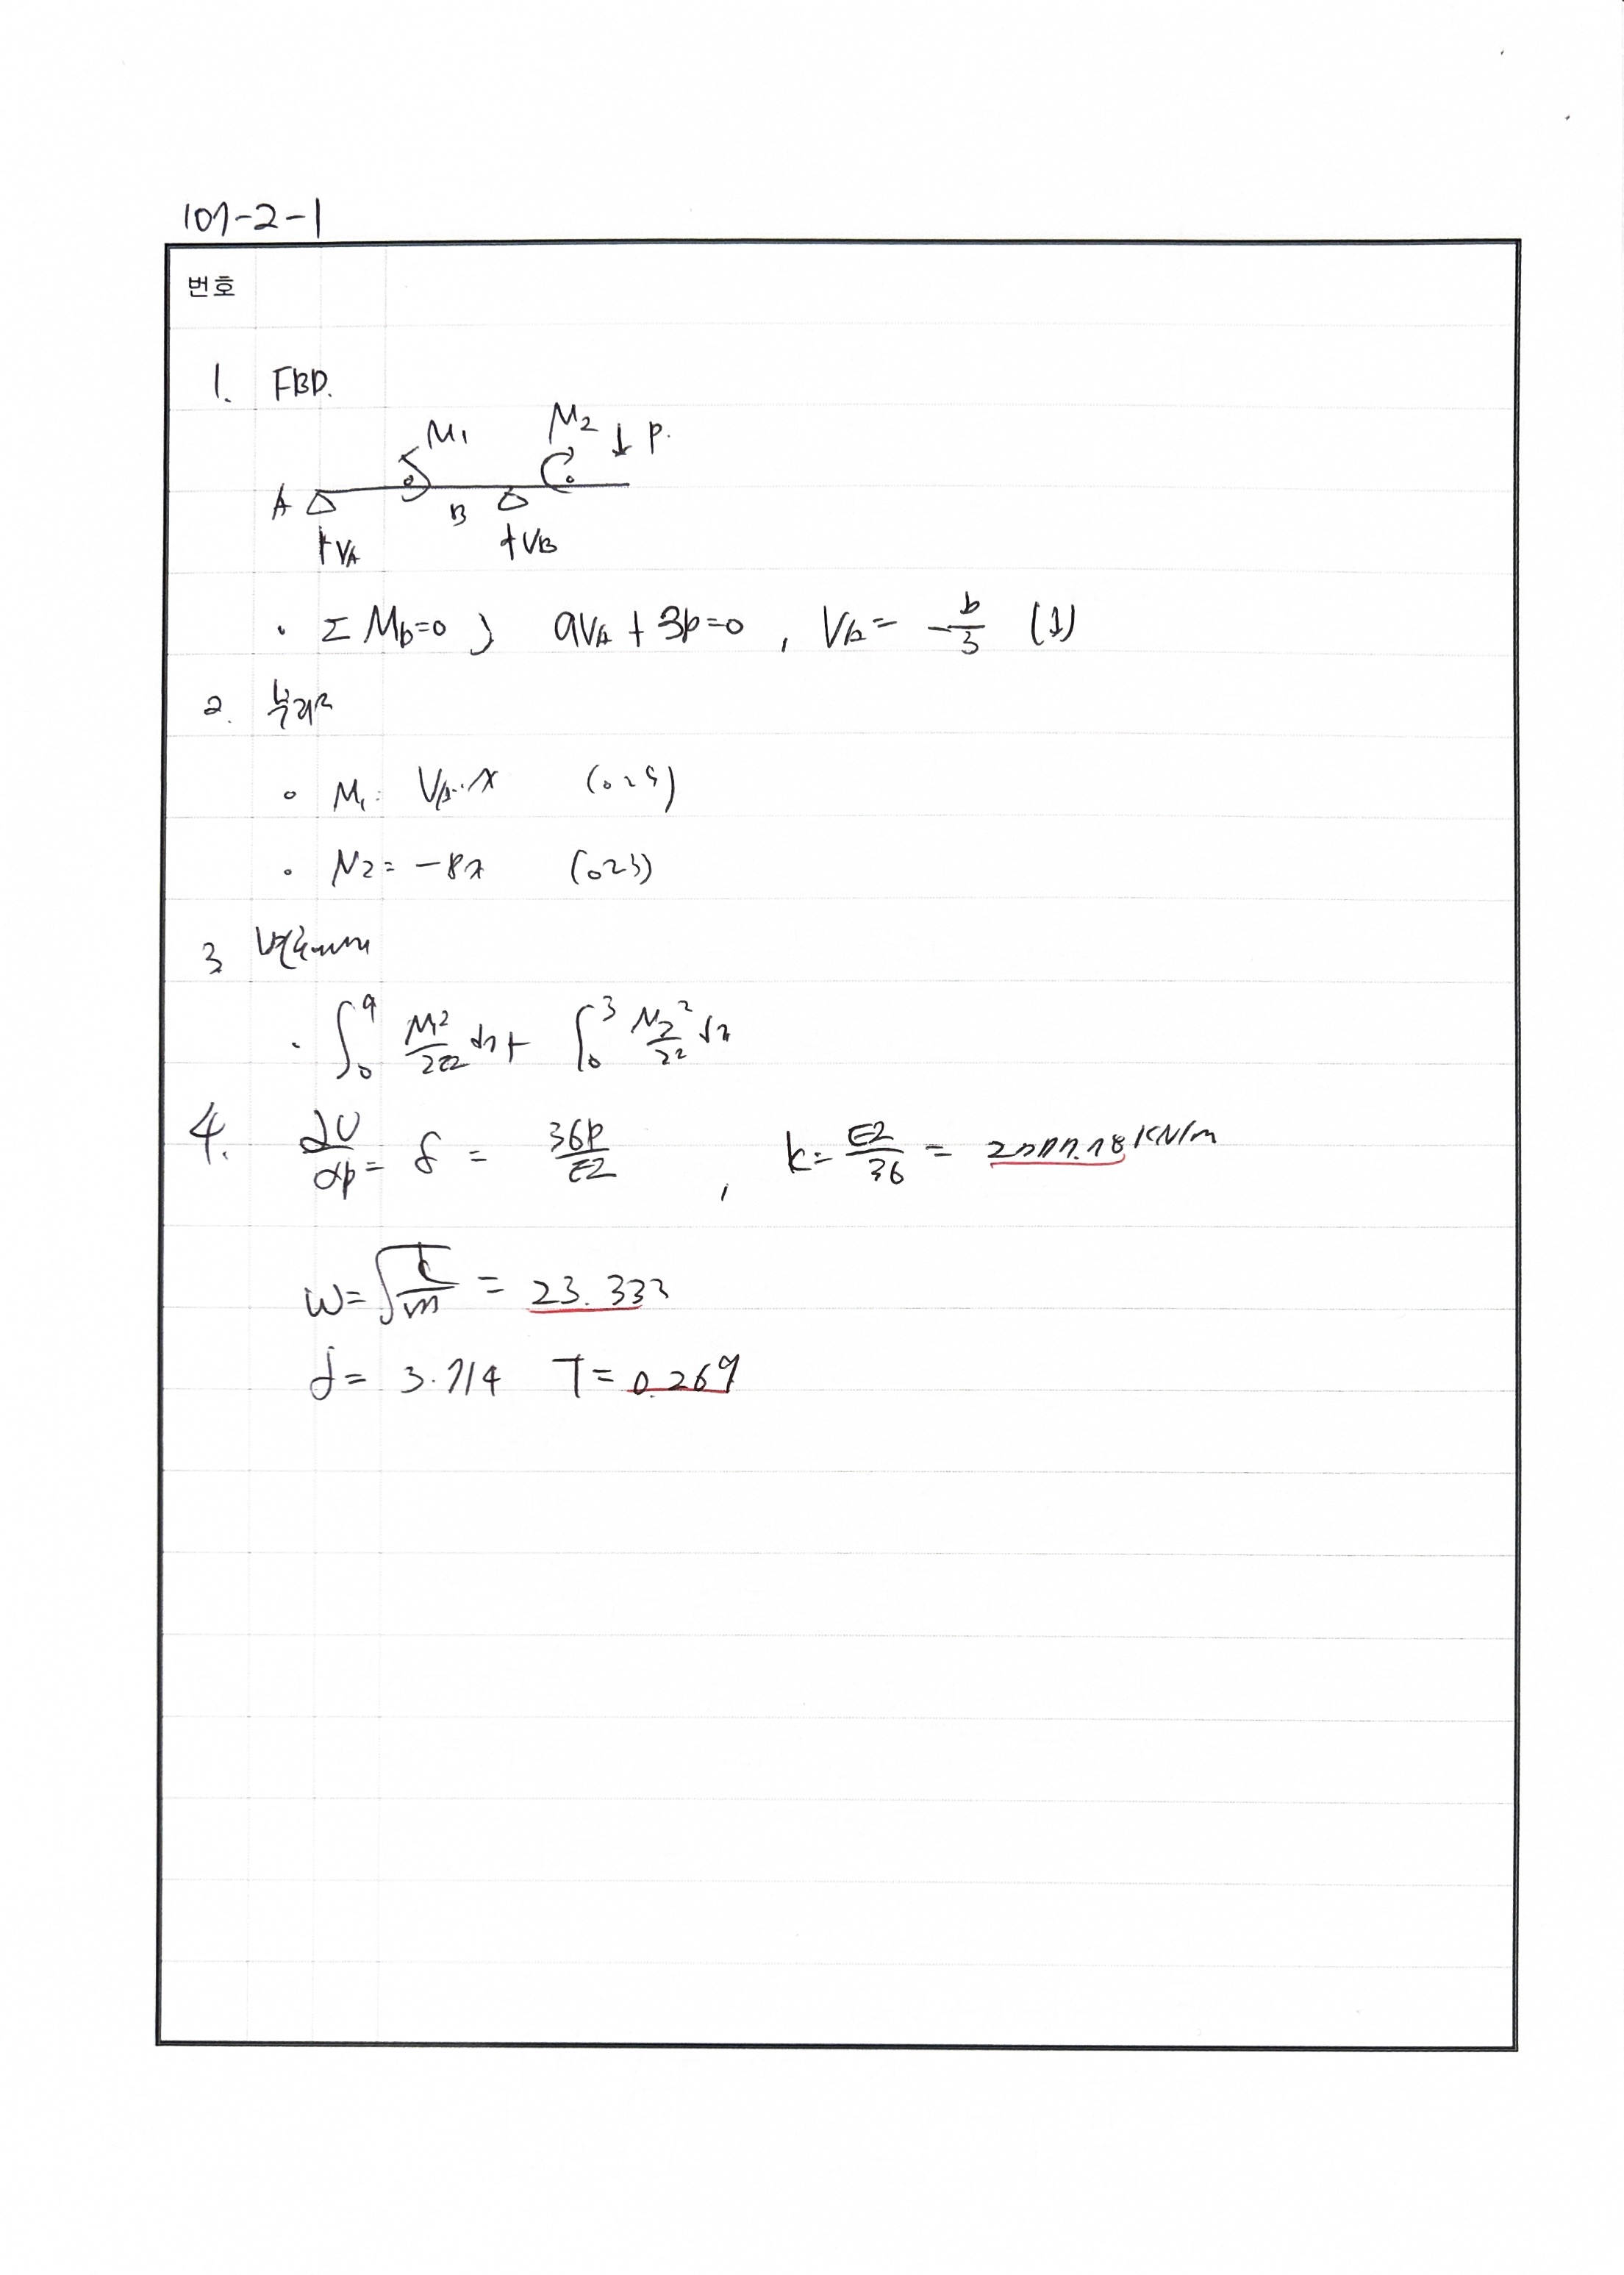 107-2-1
번호
1. FBD.
M1 M2 ↓ P.
A B
↑VA ↑VB
· ΣMb=0 ; 9VA + 3P=0 , VA= -P/3 (1)
2. 부재력
∘ M1= VA·x (0~9)
∘ M2= -Px (0~3)
3
· ∫₀⁹ M1²/2EI dx + ∫₀³ M2²/2EI dx
4. ∂U/∂P = δ = 36P/EI , k= EI/36 = KN/m
W=√k/m = 23.333
f= 3.714 T= 0.269